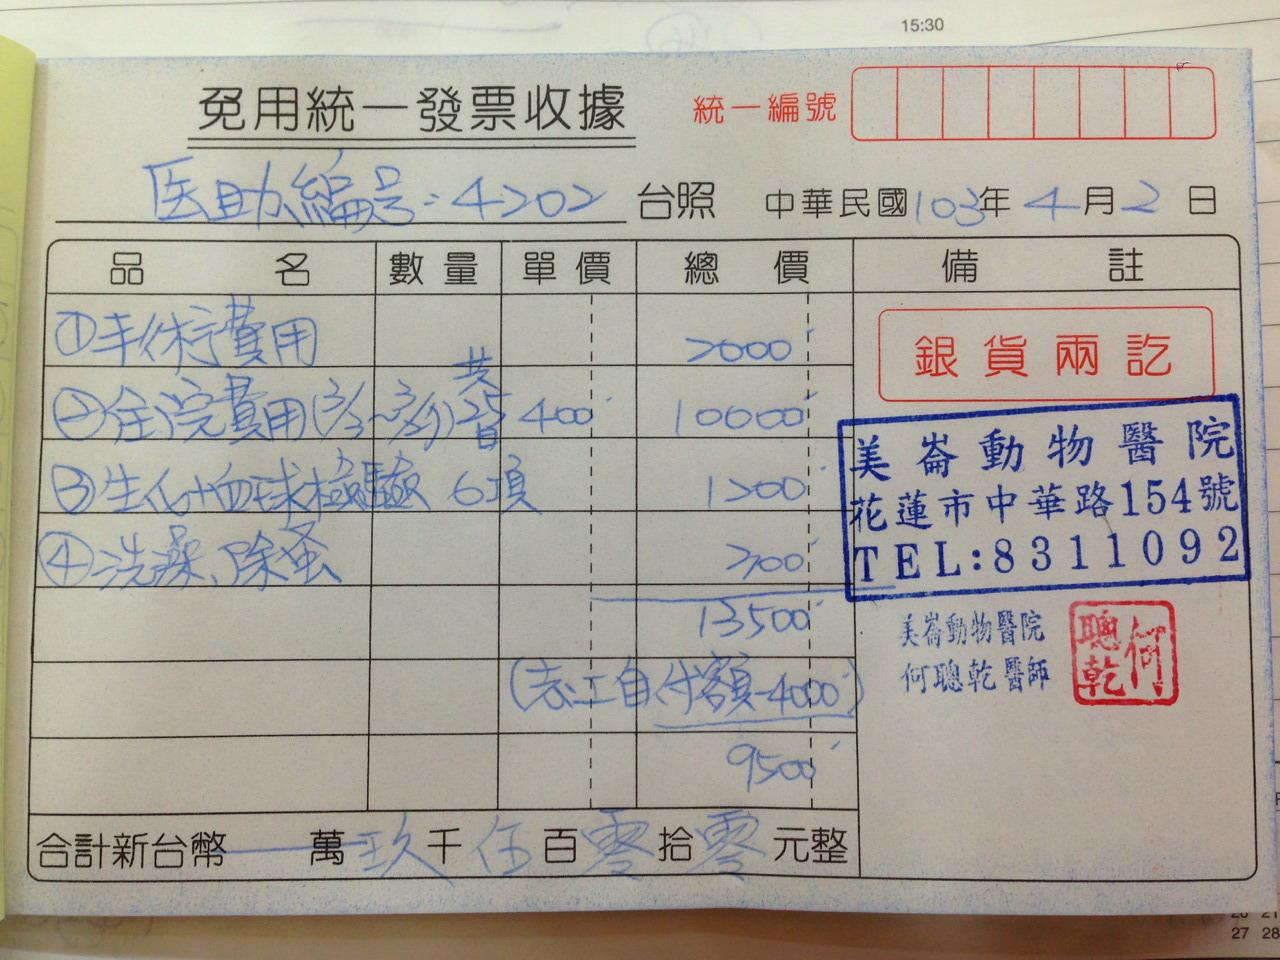 15:30
免用統一發票收據
統一編號
医助編号:4202 台照 中華民國103年4月2日
品名 數量 單價 總價 備註
①手術費用 2000
②住院費用 共25日 400 10000
③生化+血球檢驗 6項 1200
④洗澡、除蚤 300
13500
(志工自付額-4000)
9500
合計新台幣 萬玖千伍百零拾零元整
銀貨兩訖
美崙動物醫院
花蓮市中華路154號
TEL:8311092
美崙動物醫院
何聰乾醫師
何聰乾
20 21
27 28